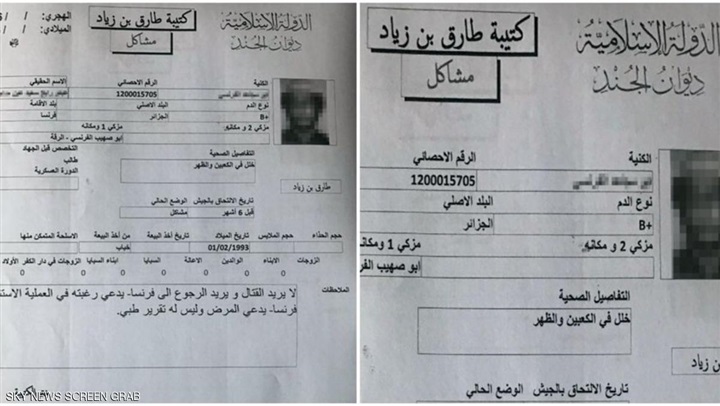 الهجري: / /
الميلادي: / /
كتيبة طارق بن زياد
مشاكل
الدولة الإسلامية
ديوان الجند
الكنية
الرقم الاحصائي
الاسم الحقيقي
1200015705
نوع الدم
البلد الاصلي
بلد الاقامة
B+
الجزائر
فرنسا
مزكي 2 و مكانه
مزكي 1 ومكانه
ابو صهيب الفرنسي - الرقة
التخصص قبل الجهاد
طالب
الدورة العسكرية
التفاصيل الصحية
خلل في الكعبين والظهر
طارق بن زياد
تاريخ الالتحاق بالجيش
الوضع الحالي
قبل 6 أشهر
مشاكل
حجم الحذاء
حجم الملابس
تاريخ الميلاد
تاريخ أخذ البيعة
من أخذ البيعة
الاسلحة المتمكن منها
01/02/1993
خباب
الزوجات
الابناء
الوالدين
الاعالة
السبايا
ابناء السبايا
الزوجات في دار الكفر
الأولاد
0 0 0 0 0 0 0
الملاحظات
لا يريد القتال و يريد الرجوع الى فرنسا- يدعي رغبته في العملية
فرنسا- يدعي المرض وليس له تقرير طبي.
SKY NEWS SCREEN GRAB
كتيبة طارق بن زياد
مشاكل
الدولة الإسلامية
ديوان الجند
الكنية
الرقم الاحصائي
1200015705
نوع الدم
البلد الاصلي
B+
الجزائر
مزكي 2 و مكانه
مزكي 1 ومكانه
ابو صهيب
التفاصيل الصحية
خلل في الكعبين والظهر
بن زياد
تاريخ الالتحاق بالجيش
الوضع الحالي